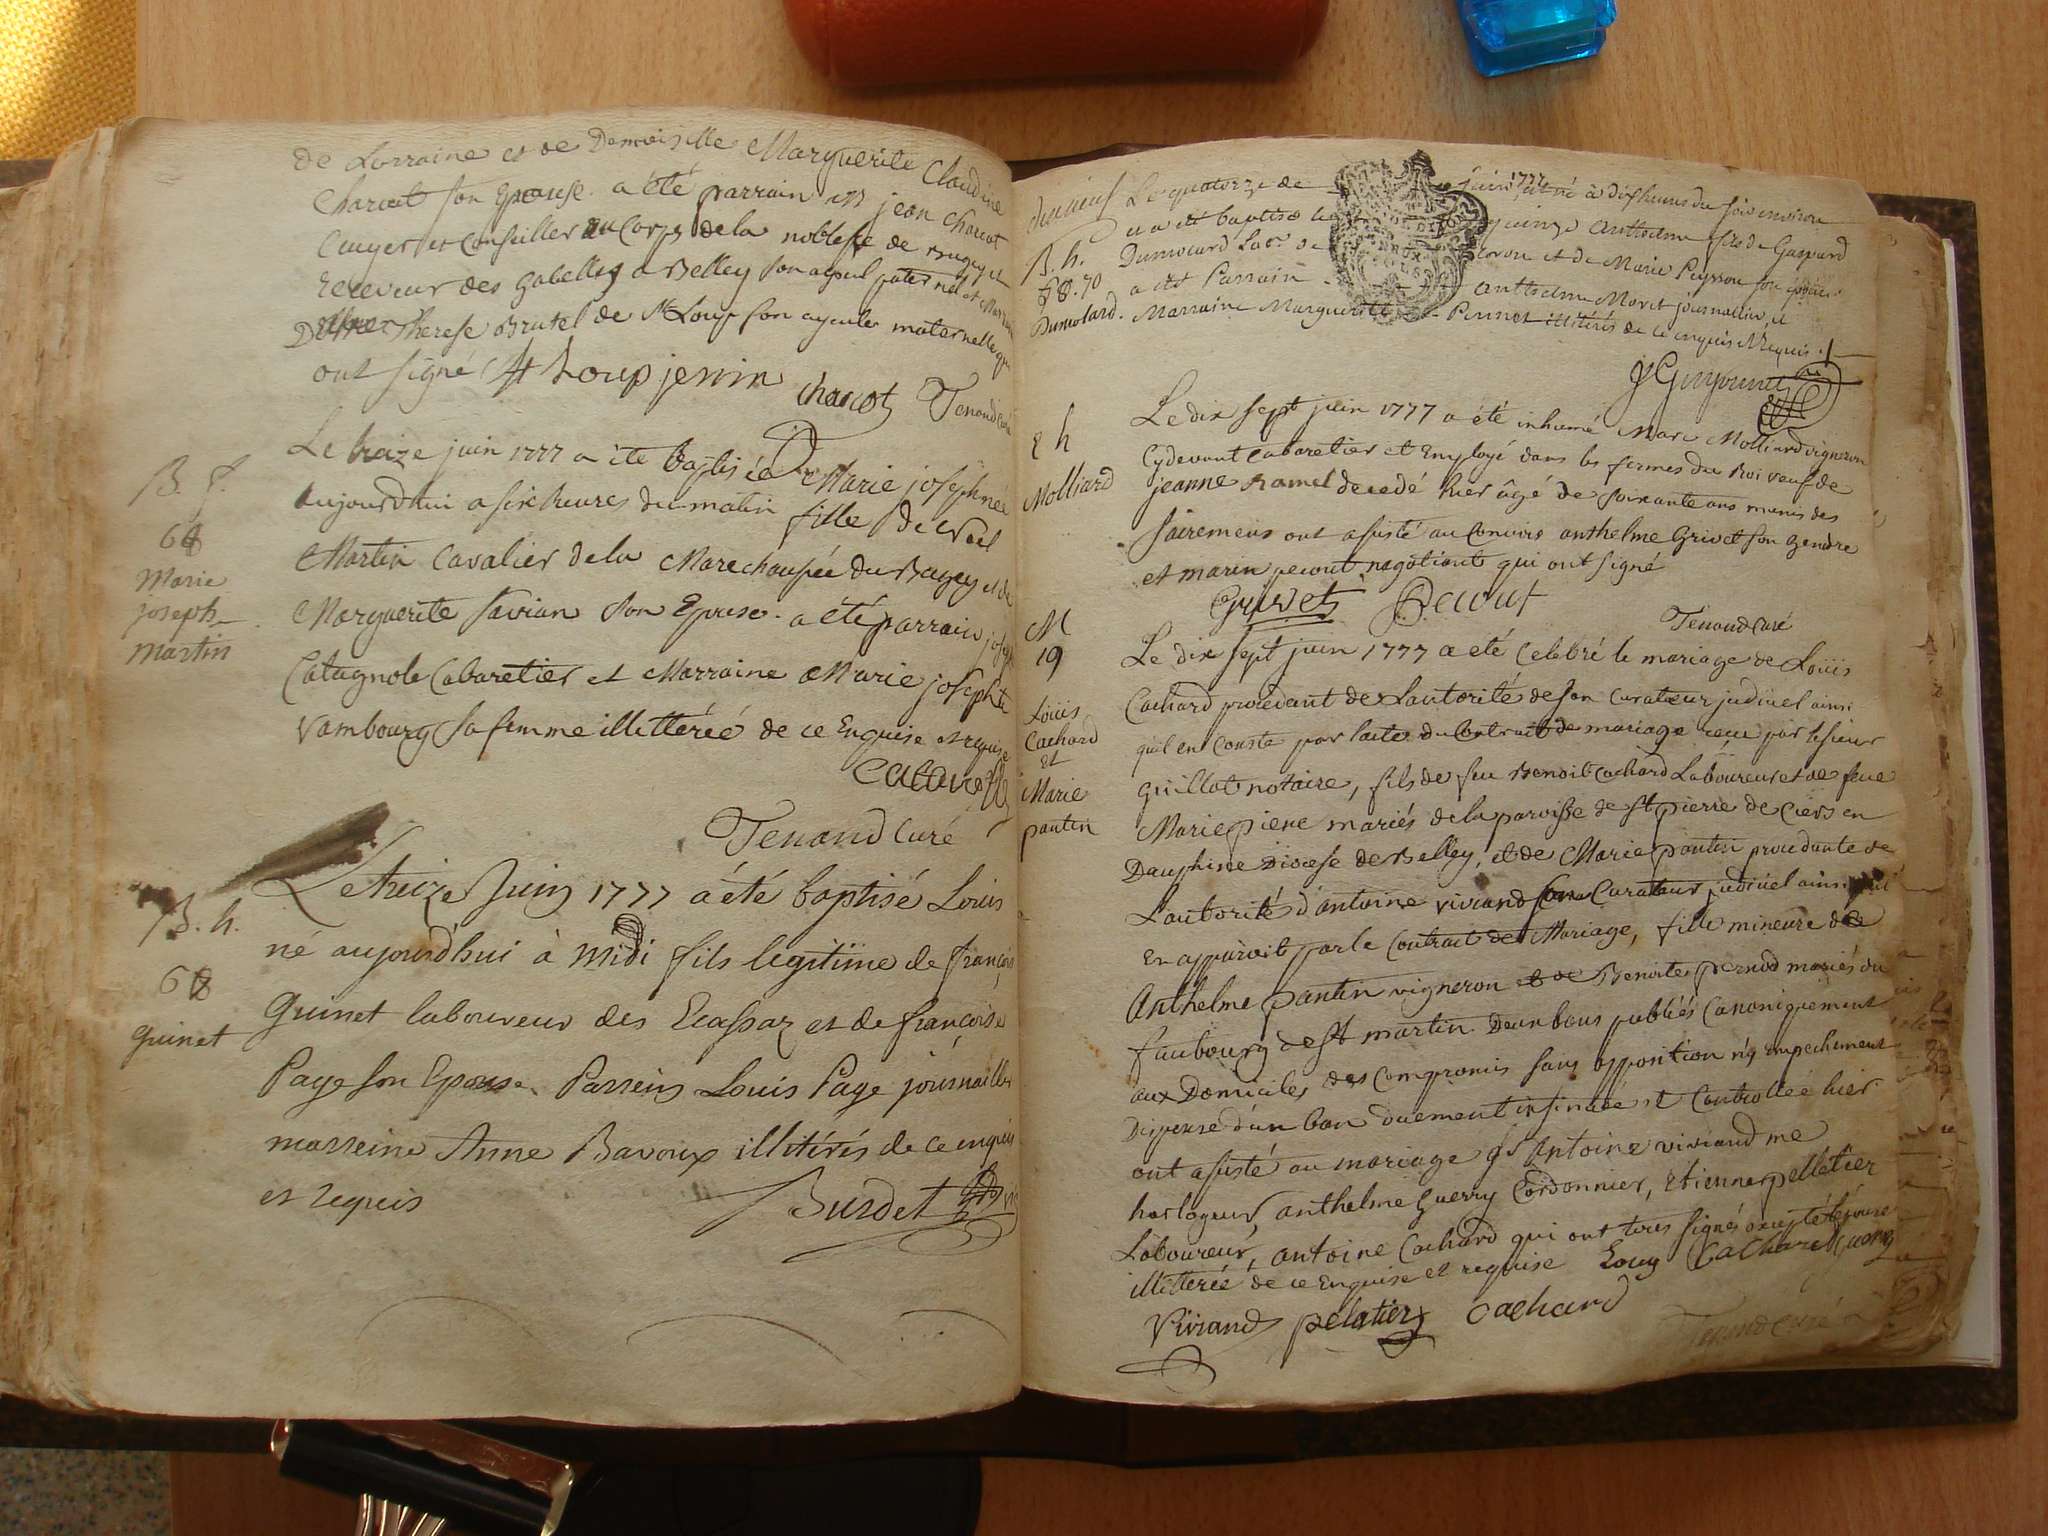 de Lorraine et de Demoiselle Marguerite Claudine
Charcot son Epouse. a été parrain jean Charcot
Ecuyer et Conseiller au Corps de la noblesse de Bugey et
Receveur des gabelles a Belley son ayeul paternel et Marraine
Therese Brutel de St Loup son ayeule maternelle qui
ont signé St Loup jenin
Charcot Tenand Curé
B. f.
68
Marie
joseph
martin
Le treize juin 1777 a été baptisée Marie josephte née
aujourdhui a six heures du matin fille de Noel
Martin Cavalier de la Marechaussée du Bugey et de
Marguerite Savian son Epouse. a été parrain joseph
Catagnole Cabaretier et Marraine Marie josephte
Vambourg sa femme illitterée de ce Enquise et requise
Tenand Curé
B. h.
68
Guinet
Le treize Juin 1777 a été baptisé Louis
né aujourd'hui à midi fils legitime de françois
Guinet laboureur des Ecassaz et de françoise
Paye son Epouse. Parrein Louis Paye journaillier
marreine Anne Bavoux illitérés de ce enquis
et requis Burdet
B. h.
70
Dumolard.
Le quatorze de juin 1777
a été baptisé Anthelme fils de Gaspard
Dumolard et de Marie Peysson son epouse
a été Parrain Anthelme Moret journallier, et
Marraine Marguerite Pernot illitérés de ce enquis & Requis
E h
Molliard
Le dix sept juin 1777 a été inhumé Marc Molliard vigneron
Cydevant Cabaretier et Employé dans les fermes du Roi veuf de
jeanne Ramel decedé hier âgé de soixante ans munis des
sacremens ont assisté au Convois anthelme Grivet son gendre
et marin pecout nagotiant qui ont signé
Grivet Pecout
Tenand Curé
M
19
Louis
Cachard
et
Marie
pantin
Le dix sept juin 1777 a été Celebré le mariage de Louis
Cachard procedant de Lautorité de son Curateur judiciel ainsi
quil en Conste par lacte du Contrait de mariage recu par le sieur
Guillot notaire, fils de feu Benoit Cachard Laboureur et de feue
Marie piene mariés de la paroisse de St pierre de Ciers en
Dauphine Diocese de Belley, et de Marie pantin procedante de
Lautorité d'antoine viviand son Curateur judiciel ainsi quil
en apparoit par le Contrait de Mariage, fille mineure de
Anthelme pantin vigneron et de Benoite pernod mariés du
faubourg de St martin. Deux bans publiés Canoniquement
aux Domiciles des Compromis sans opposition ny Empechement
Dispense d'un ban duement insinuée et Controllée hier
ont assisté au mariage Sr Antoine viviand me
horlogeur, anthelme Guerry Cordonnier, Etienne pelletier
Laboureur, antoine Cachard qui ont tous signés excepté l'épouse
illitterée de ce Enquise et requise Louy Cachard Guerry
Viviand pelatier Cachard
Tenand Curé